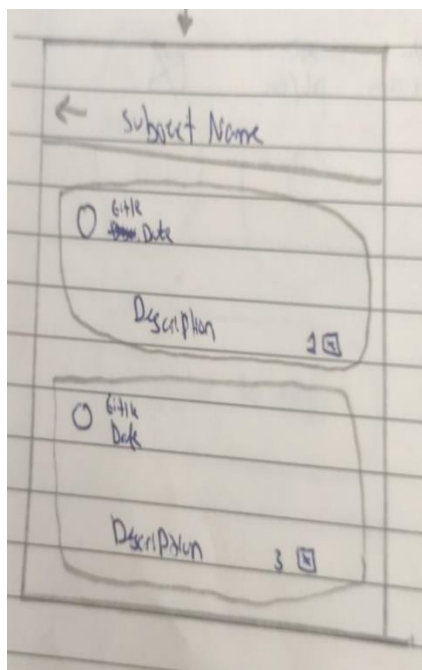 ← Subject Name
title
Date
Description
1
title
Date
Description
3